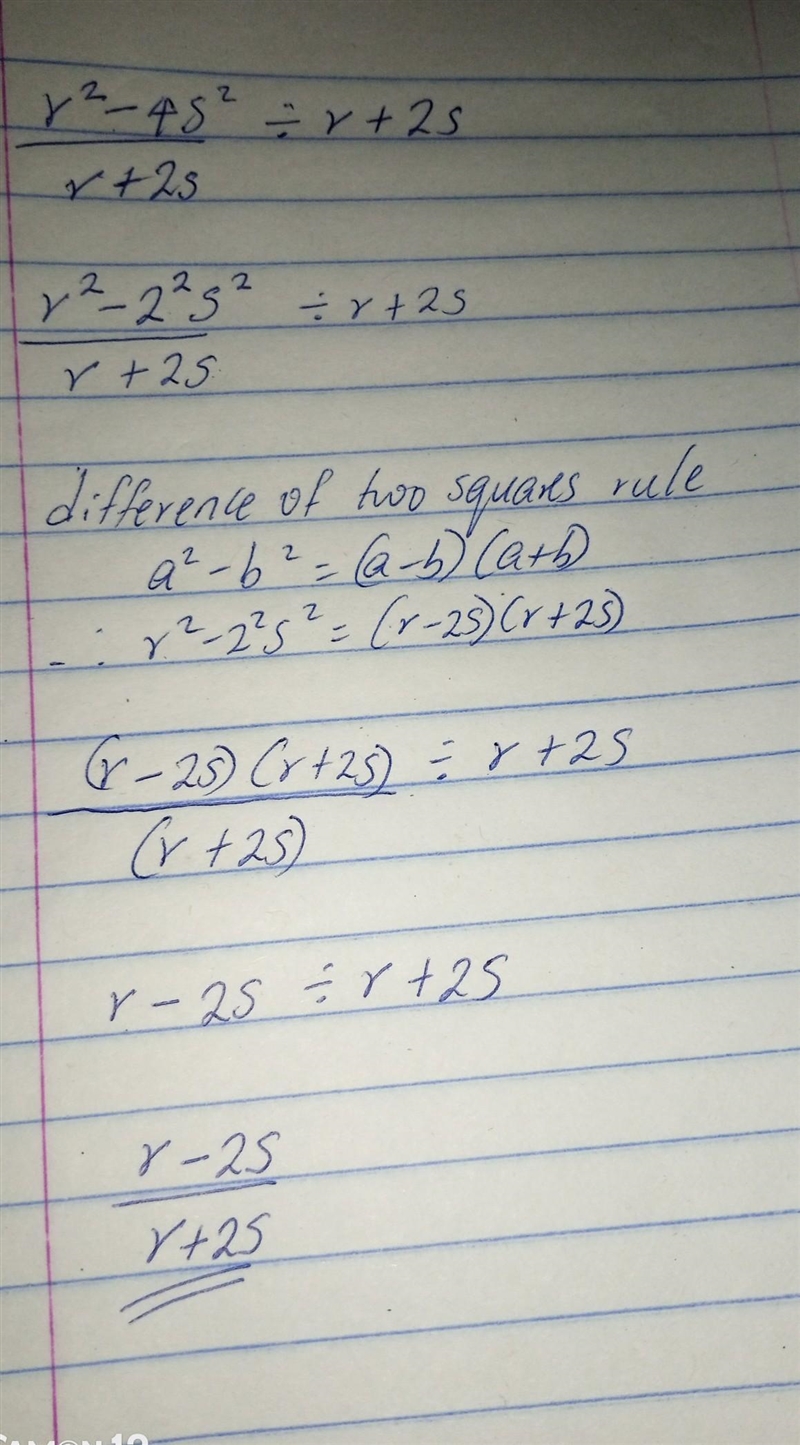 r² - 4s² ÷ r + 2s
r + 2s
r² - 2²s² ÷ r + 2s
r + 2s
difference of two squares rule
a² - b² = (a-b)(a+b)
∴ r² - 2²s² = (r-2s)(r+2s)
(r - 2s)(r+2s) ÷ r + 2s
(r + 2s)
r - 2s ÷ r + 2s
r - 2s
r+2s